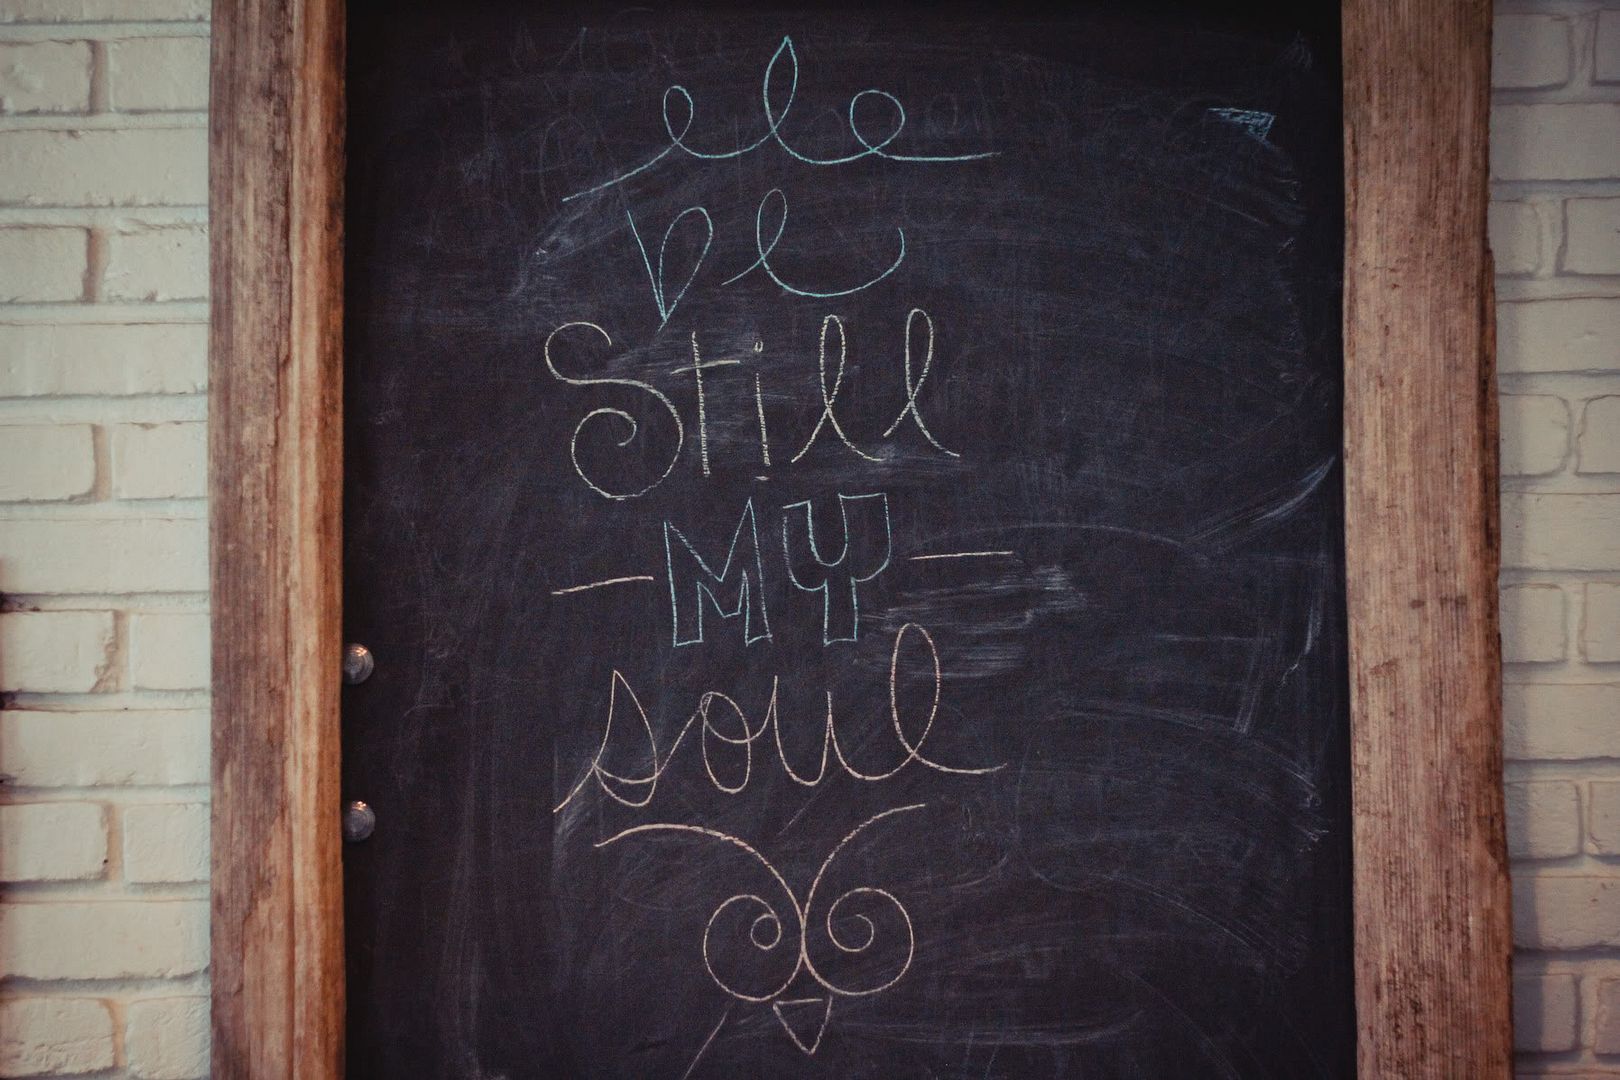 be
Still
MY
soul